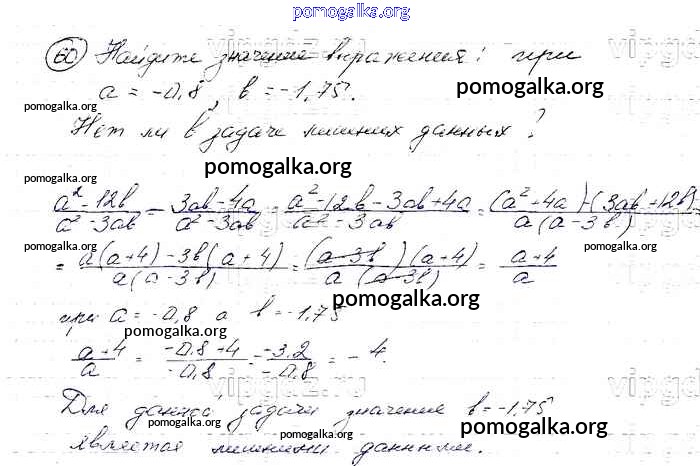 pomogalka.org
60 Найдите значение выражения: при
a = -0,8, b = -1,75.
pomogalka.org
pomogalka.org
Нет ли в задаче лишних данных?
pomogalka.org
pomogalka.org
(a² - 12b)/(a² - 3ab) - (3ab - 4a)/(a² - 3ab) = (a² - 12b - 3ab + 4a)/(a² - 3ab) = ((a² + 4a) - (3ab + 12b))/(a(a - 3b)) =
pomogalka.org pomogalka.org pomogalka.org
= (a(a + 4) - 3b(a + 4))/(a(a - 3b)) = ((a - 3b)(a + 4))/(a(a - 3b)) = (a + 4)/a
pomogalka.org
при a = -0,8 а b = -1,75
pomogalka.org
(a + 4)/a = (-0,8 + 4)/(-0,8) = (-3,2)/(-0,8) = -4.
vipgdz.ru
pomogalka.org pomogalka.org
Для данной задачи значение b = -1,75
pomogalka.org pomogalka.org
является лишними данными.